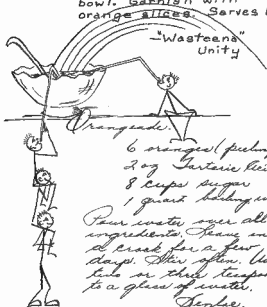 bowl. Garnish with
orange slices. Serves
"Wasteena"
Unity
Orangeade
6 oranges
2 oz Tartaric
8 cups sugar
1 quart boiling
Pour water over all
ingredients. Leave in
a crock for a few
days. Stir often. Use
two or three
to a glass of water.